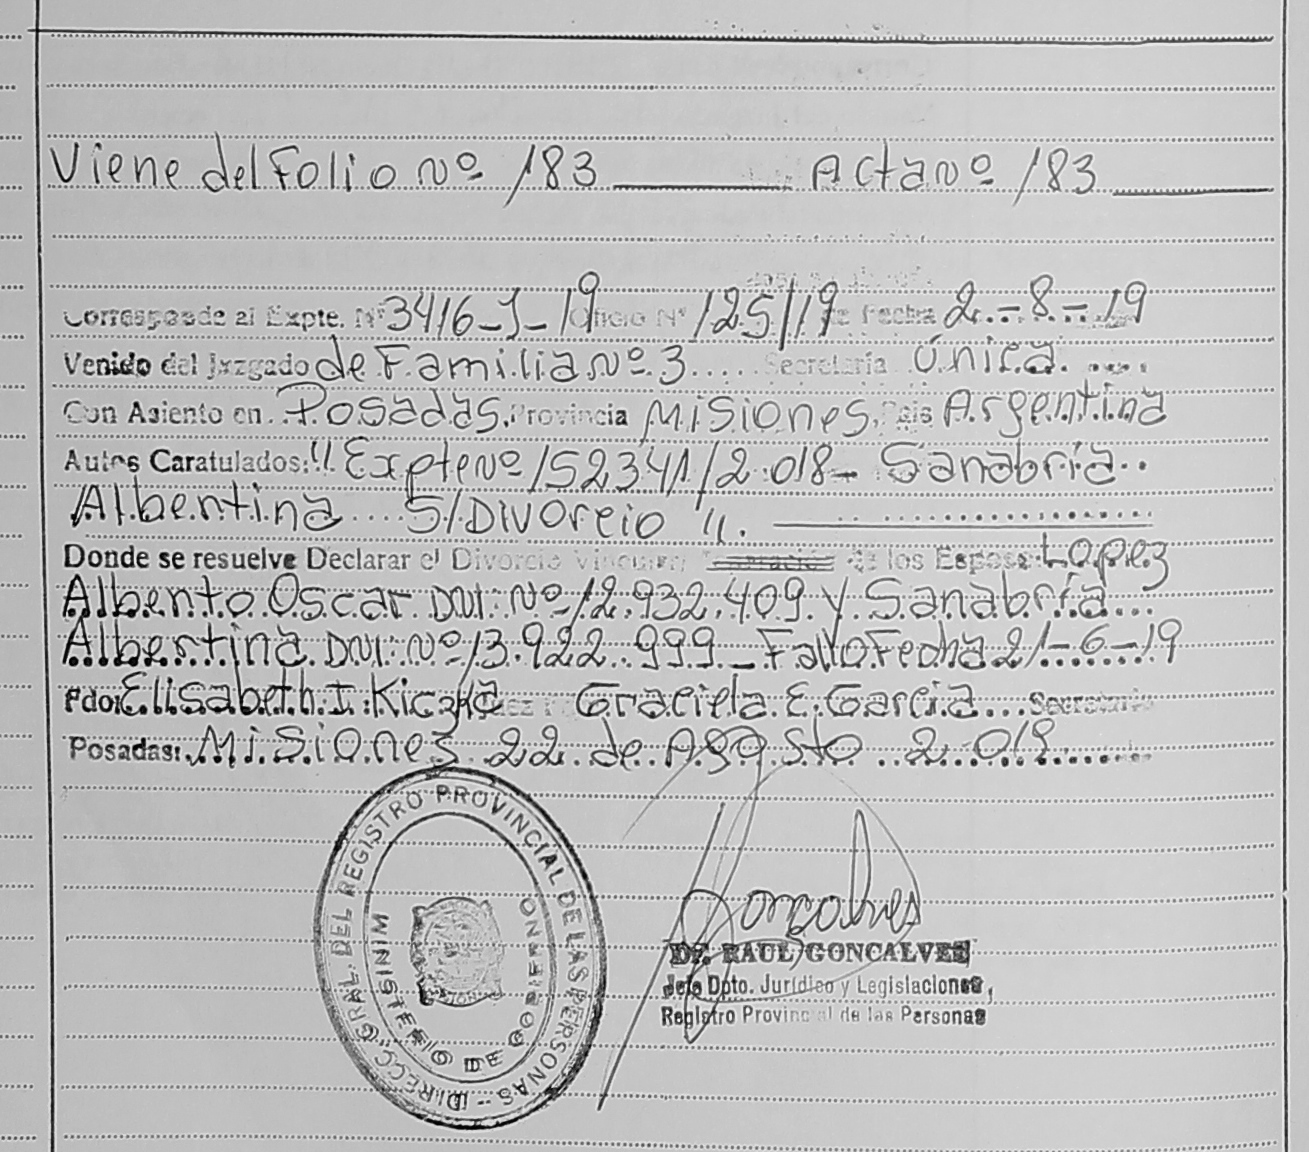 Viene del Folio Nº 183 Acta Nº 183
Corresponde al Expte. Nº 3416-J-19 Oficio Nº 125/19 de Fecha 2-8-19
Venido del Juzgado de Familia Nº 3 Secretaría Única
Con Asiento en Posadas, Provincia Misiones, País Argentina
Autos Caratulados: "Expte Nº 152341/2.018- Sanabria
Albentina S/Divorcio".
Donde se resuelve Declarar el Divorcio Vincular de los Esposos: Lopez
Albento Oscar DNI: Nº 12.932.409 y Sanabria
Albertina DNI: Nº 13.922.999 - Fallo Fecha 21-6-19
Fdo: Elisabeth I. Juez Graciela E. Garcia Secretario
Posadas: Misiones 22 de Agosto 2.019
DIRECC. GRAL. DEL REGISTRO PROVINCIAL DE LAS PERSONAS
MINISTERIO DE GOBIERNO
Goncalves
Dr. RAUL GONCALVES
Jefe Dpto. Jurídico y Legislaciones,
Registro Provincial de las Personas